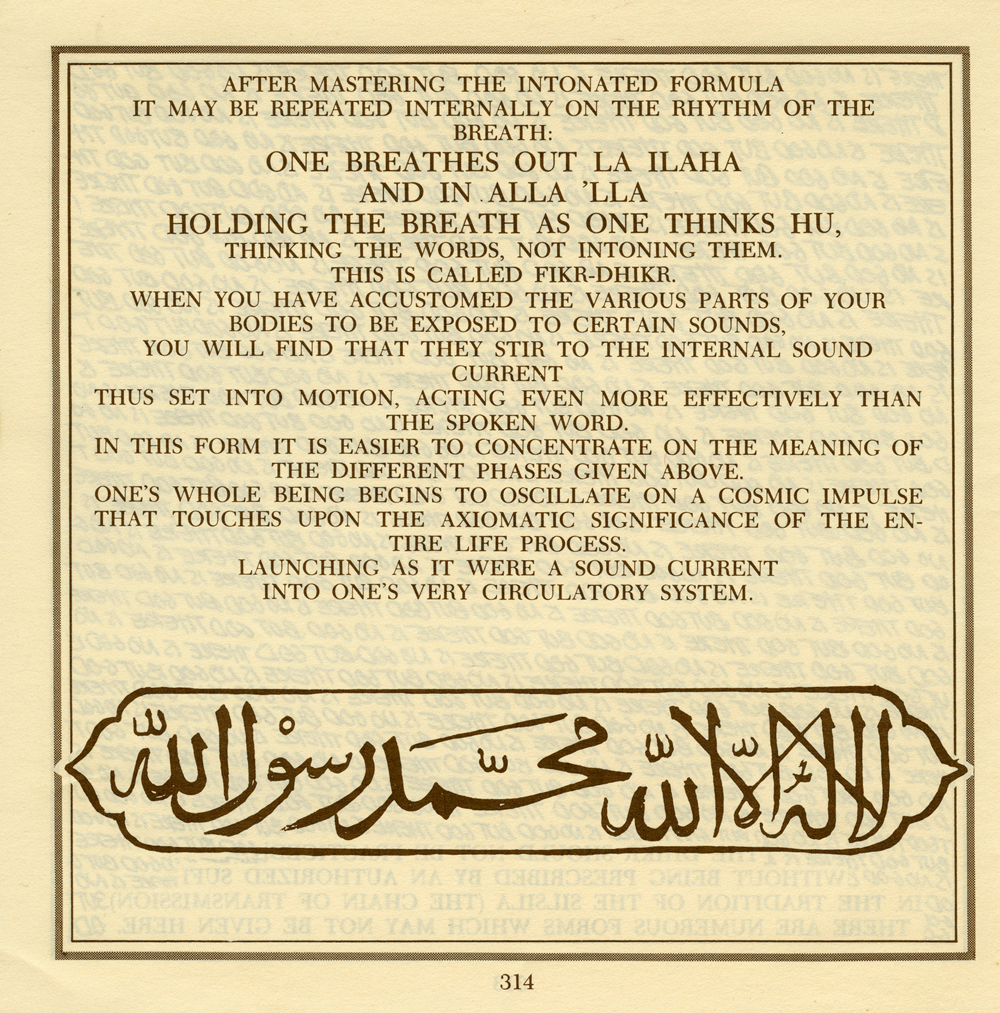 AFTER MASTERING THE INTONATED FORMULA
IT MAY BE REPEATED INTERNALLY ON THE RHYTHM OF THE
BREATH:
ONE BREATHES OUT LA ILAHA
AND IN ALLA 'LLA
HOLDING THE BREATH AS ONE THINKS HU,
THINKING THE WORDS, NOT INTONING THEM.
THIS IS CALLED FIKR-DHIKR.
WHEN YOU HAVE ACCUSTOMED THE VARIOUS PARTS OF YOUR
BODIES TO BE EXPOSED TO CERTAIN SOUNDS,
YOU WILL FIND THAT THEY STIR TO THE INTERNAL SOUND
CURRENT
THUS SET INTO MOTION, ACTING EVEN MORE EFFECTIVELY THAN
THE SPOKEN WORD.
IN THIS FORM IT IS EASIER TO CONCENTRATE ON THE MEANING OF
THE DIFFERENT PHASES GIVEN ABOVE.
ONE'S WHOLE BEING BEGINS TO OSCILLATE ON A COSMIC IMPULSE
THAT TOUCHES UPON THE AXIOMATIC SIGNIFICANCE OF THE EN-
TIRE LIFE PROCESS.
LAUNCHING AS IT WERE A SOUND CURRENT
INTO ONE'S VERY CIRCULATORY SYSTEM.
لا اله الا الله محمد رسول الله
314